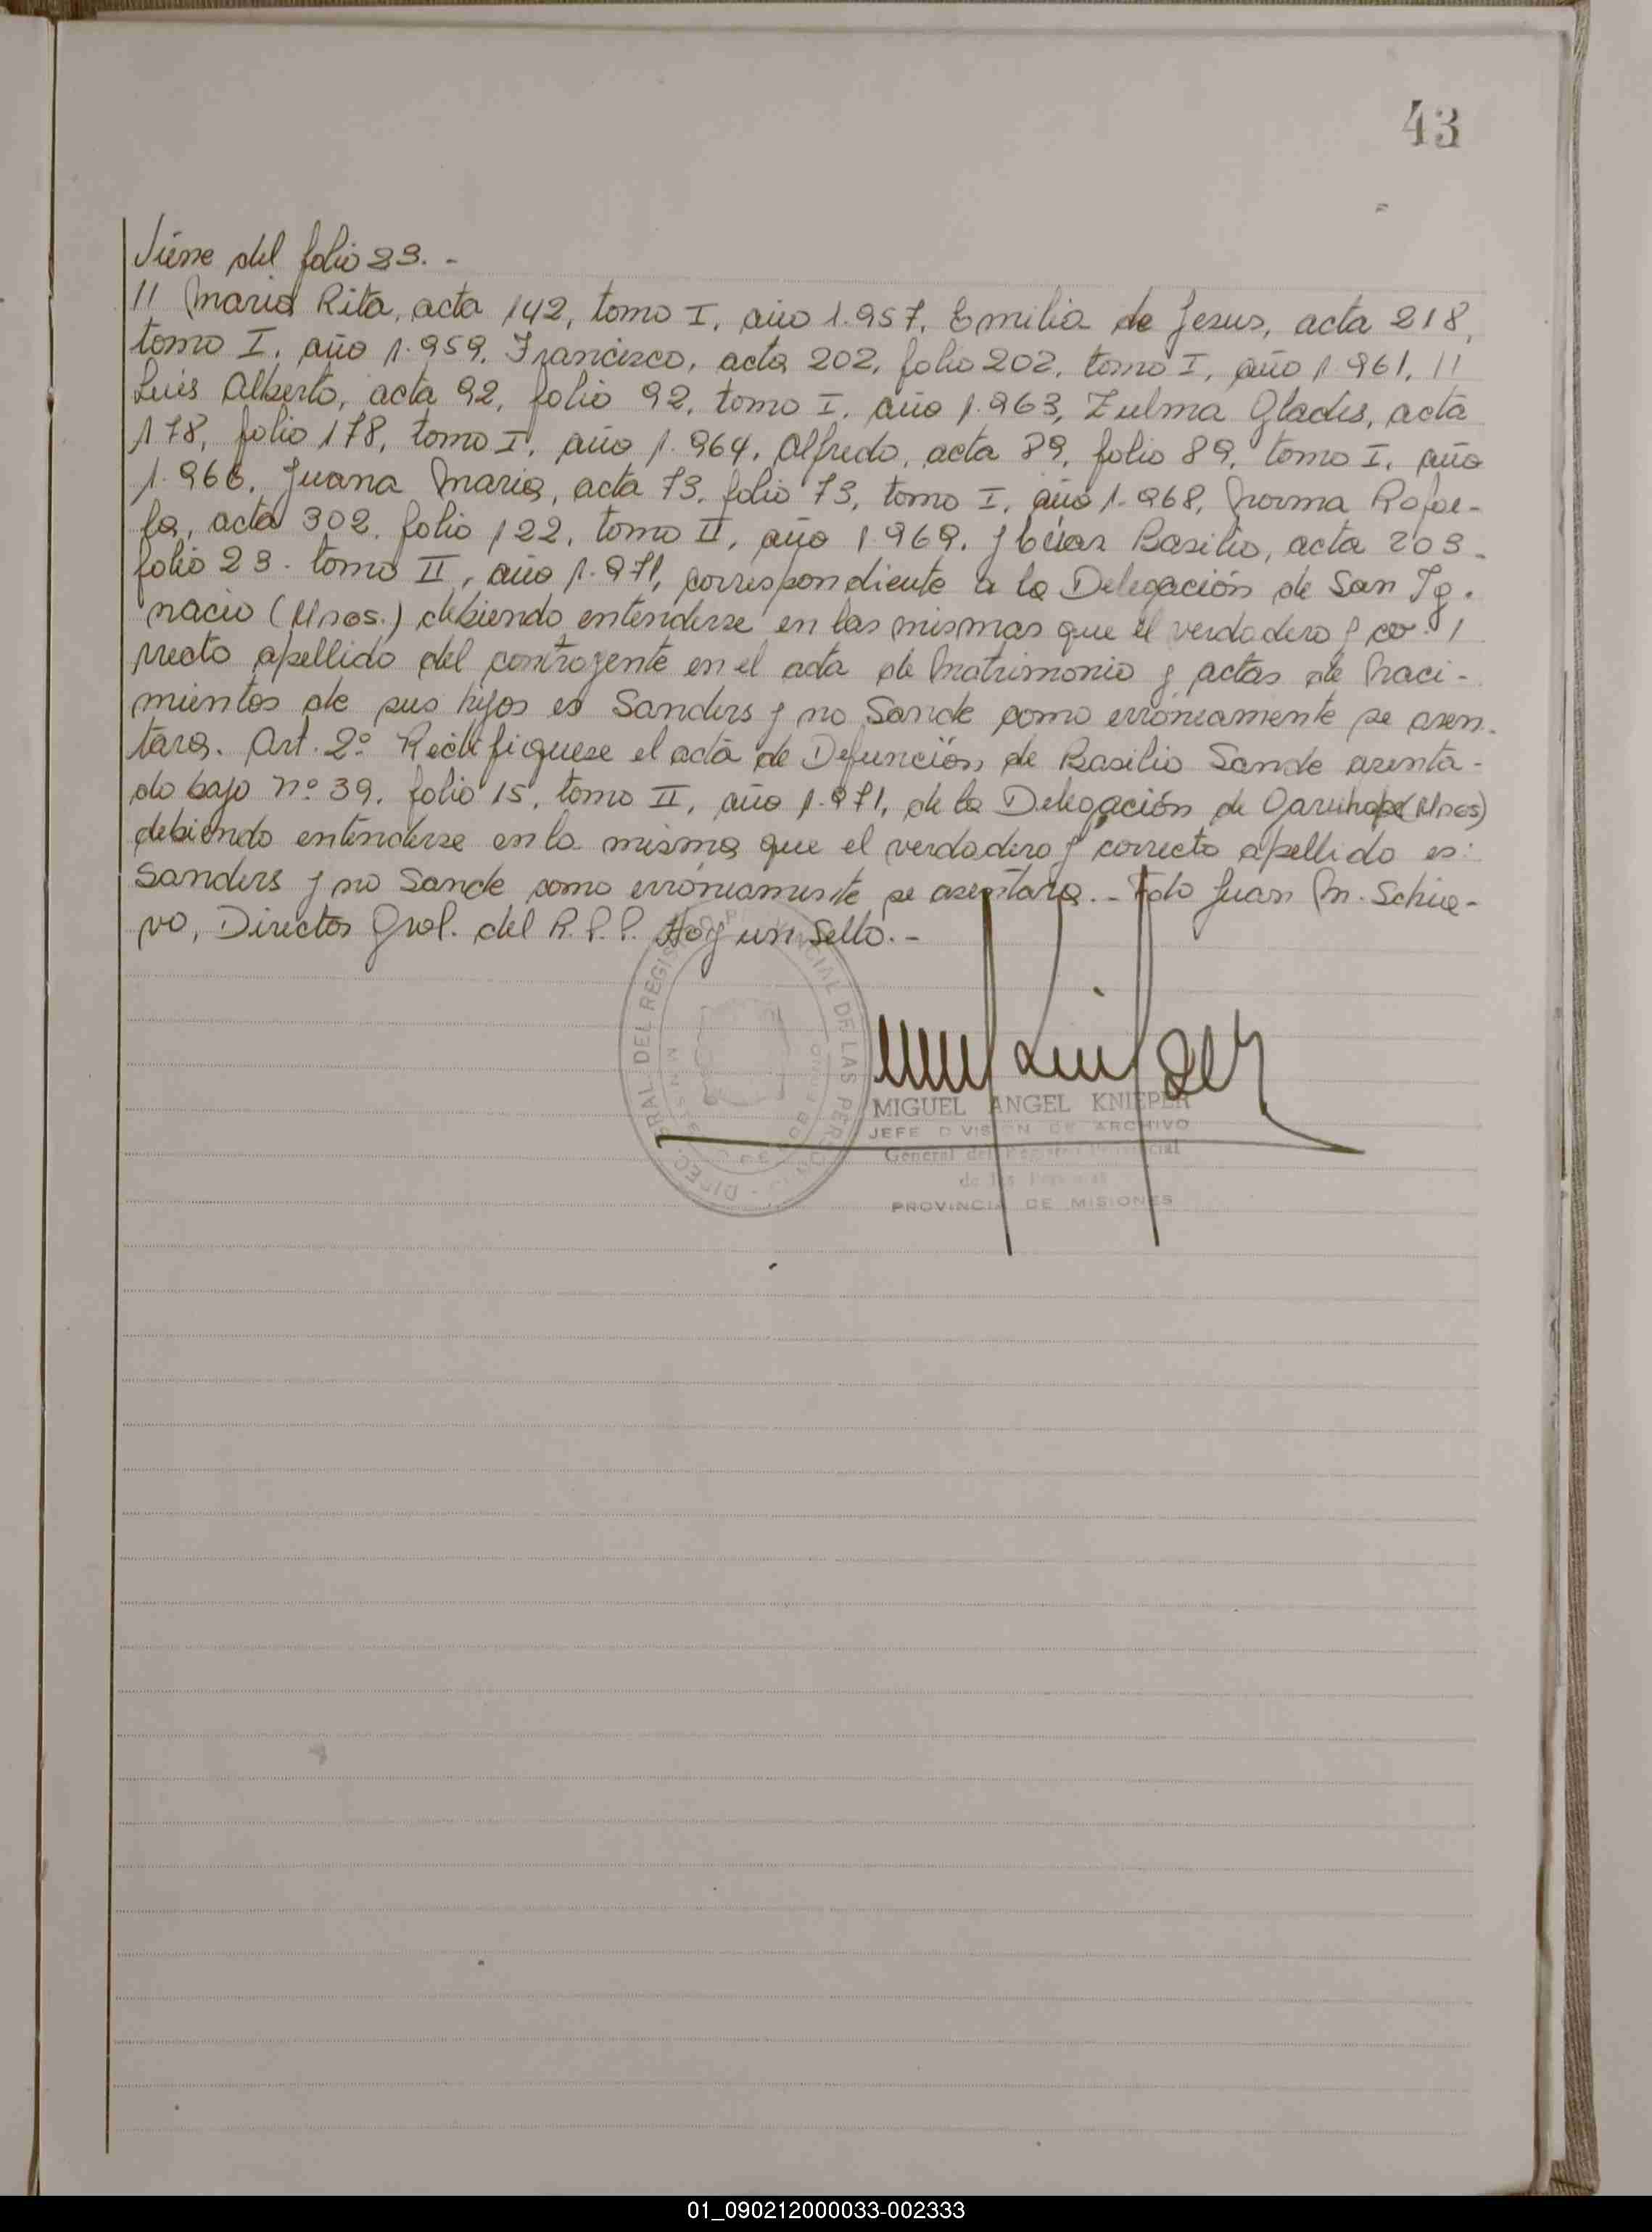 43
Viene del folio 23. -
11 Maria Rita, acta 142, tomo I, año 1.957, Emilia de Jesus, acta 218,
tomo I, año 1.959, Francisco, acta 202, folio 202, tomo I, año 1.961, 11
Luis Alberto, acta 92, folio 92, tomo I, año 1.963, Zulma Gladis, acta
178, folio 178, tomo I, año 1.964, Alfredo, acta 89, folio 89, tomo I, año
1.966, Juana Maria, acta 73, folio 73, tomo I, año 1.968, Norma Rafae-
la, acta 302, folio 122, tomo II, año 1.969, y Basilio, acta 203-
folio 23. tomo II, año 1.971, correspondiente a la Delegación de San Ig.
nacio (Mnes.) debiendo entenderse en las mismas que el verdadero y cor-1
rrecto apellido del contrayente en el acta de Matrimonio y actas de Naci-
mientos de sus hijos es Sanders y no Sande como erróneamente se asen.
tara. Art. 2º Rectifiquese el acta de Defunción de Basilio Sande asenta-
do bajo nº 39, folio 15, tomo II, año 1.971, de la Delegación de Garuhape (Mnes)
debiendo entenderse en la misma que el verdadero y correcto apellido es:
Sanders y no Sande como erróneamente se asentara. - Fdo Juan M. Schia-
vo, Director Gral. del R.P.P. Hay un Sello. -
MIGUEL ANGEL KNIEPER
JEFE DIVISION DE ARCHIVO
General del Registro Provincial
de las Personas
PROVINCIA DE MISIONES
01_090212000033-002333